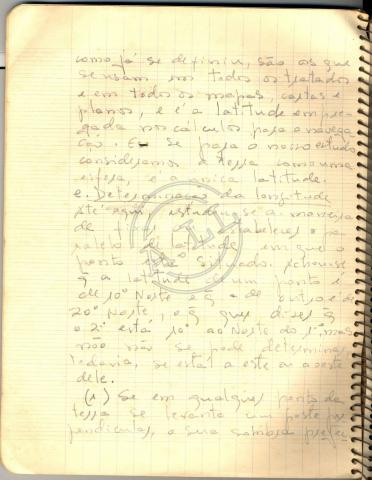 como já se definiu, são os que
se usam em todos os tratados
e em todos os mapas, cartas e
planos, e é a latitude empre-
gada nos cálculos para a navega
ção. E se para o nosso estudo
consideramos a terra como uma
esfera, é a unica latitude.
e. Determinação da longitude
Até aqui, estudou-se a maneira
de se estabelecer o pa
ralelo de latitude em que o
ponto está situado. Achou-se
q a latitude de um ponto é
de 10° Norte e q a de outro é de
20° Norte, e q quer dizer q
o 2° está 10° ao Norte do 1°, mas
não se pode determinar
todavia, se está a este ou a oeste
dele.
(1) Se em qualquer ponto da
terra se levanta um poste per
pendicular, a sua sombra